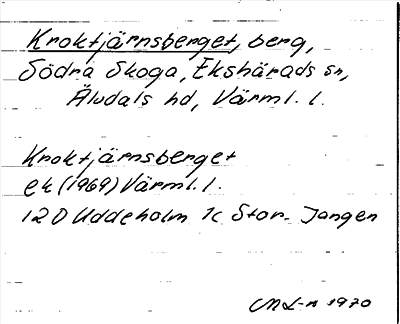 Kroktjärnsberget, berg,
Södra Skoga, Ekshärads sn,
Äludals hd, Värml. l.
Kroktjärnsberget
ek (1969) Värml. l.
12 D Uddeholm 1c Stor-Jangen
ML-n 1970